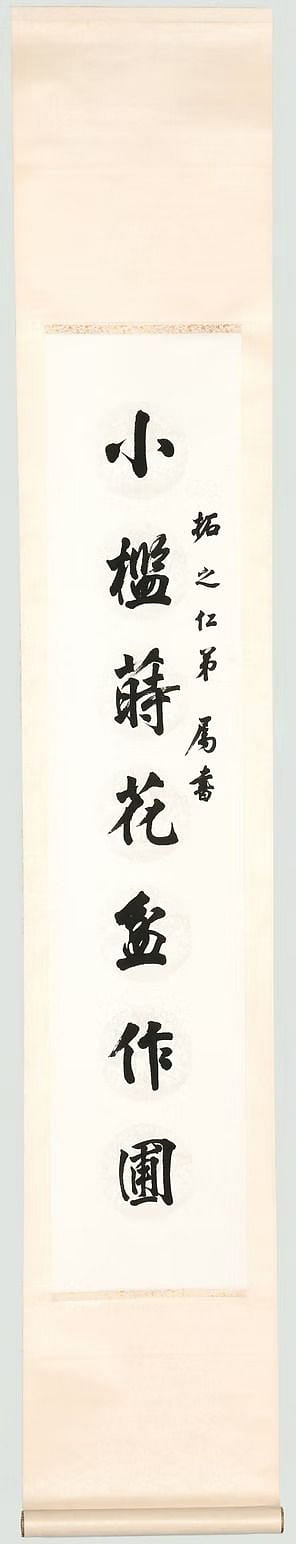 拓之仁弟 属書
小檻蒔花盆作圃